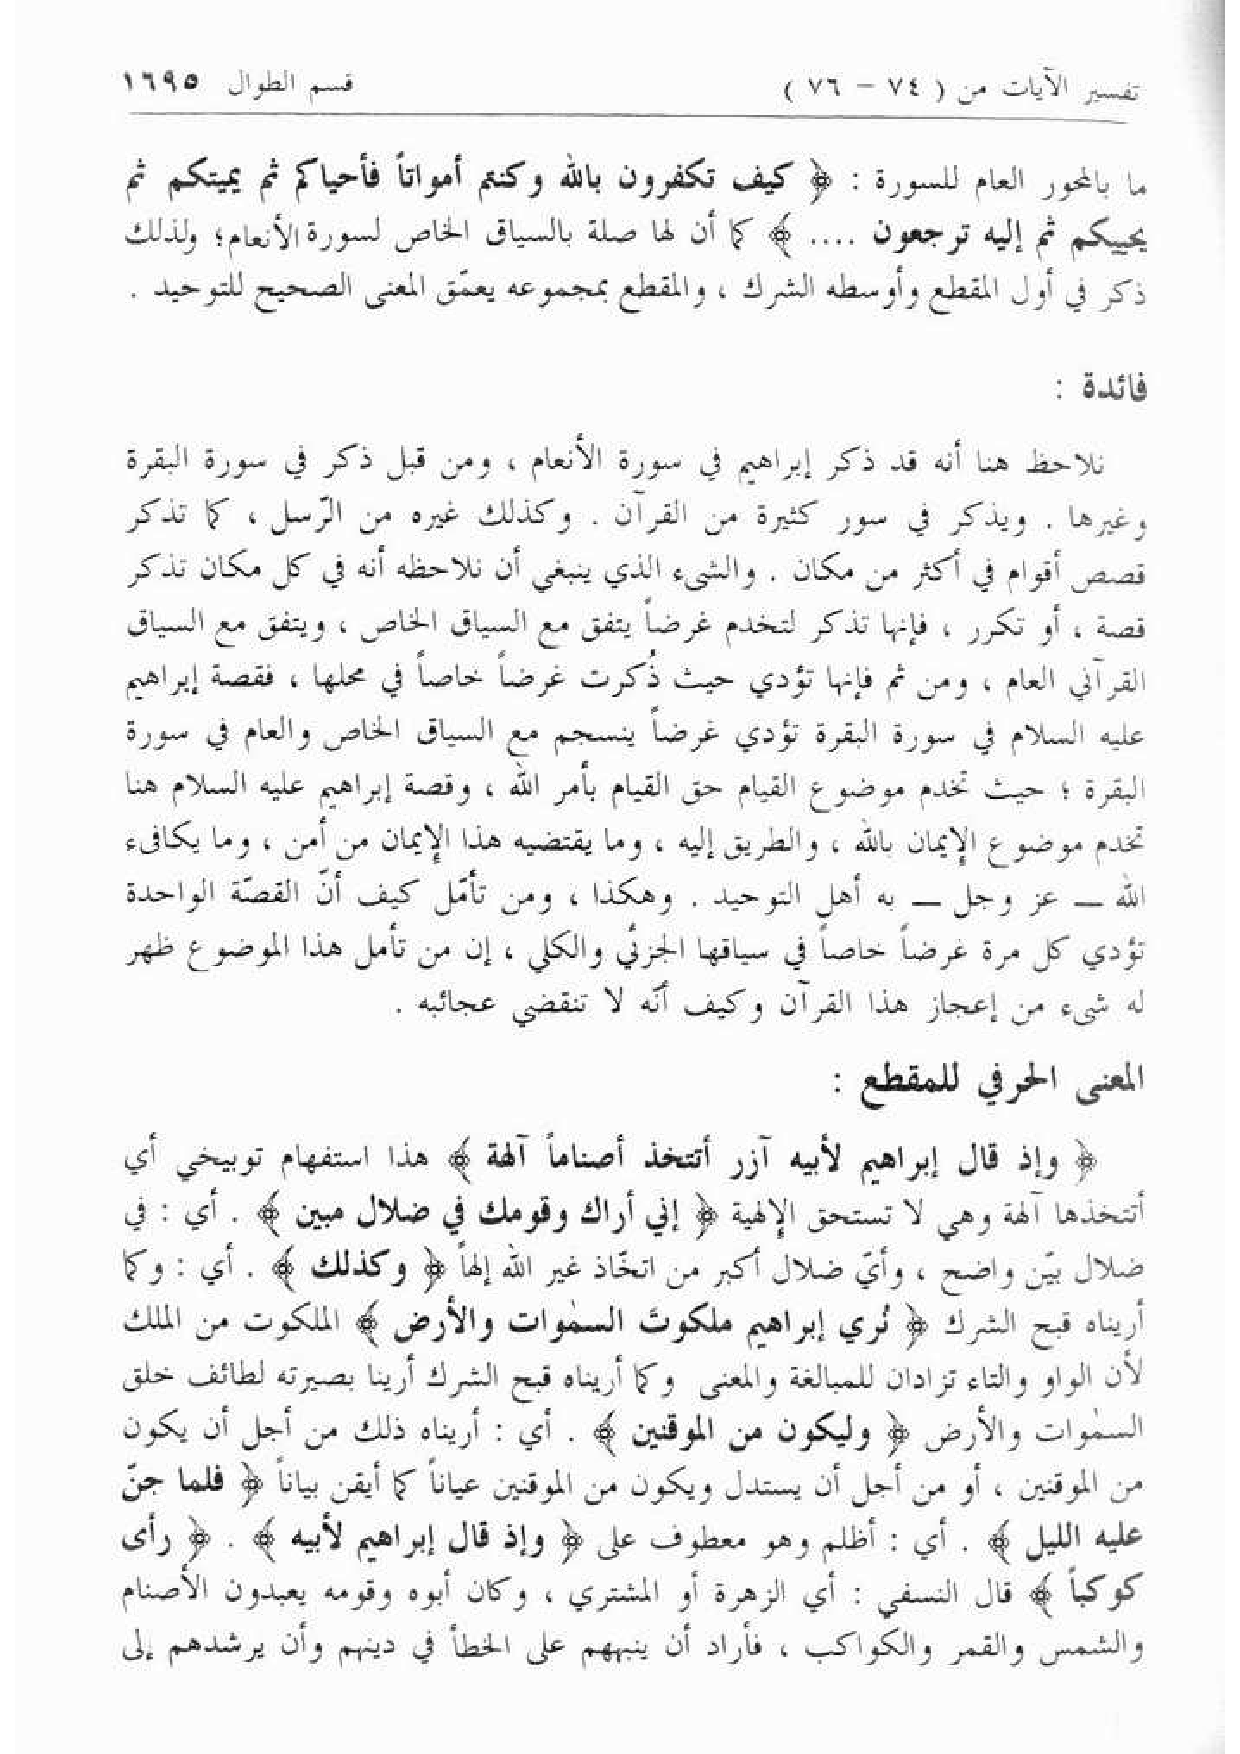 تفسير الآيات من ( ٧٤ – ٧٦ ) قسم الطوال ١٦٩٥
ما بالمحور العام للسورة : ﴿ كيف تكفرون بالله وكنتم أمواتاً فأحياكم ثم يميتكم ثم
يحييكم ثم إليه ترجعون .... ﴾ كما أن لها صلة بالسياق الخاص لسورة الأنعام؛ ولذلك
ذكر في أول المقطع وأوسطه الشرك ، والمقطع بمجموعه يعمّق المعنى الصحيح للتوحيد .
فائدة :
نلاحظ هنا أنه قد ذكر إبراهيم في سورة الأنعام ، ومن قبل ذكر في سورة البقرة
وغيرها . ويذكر في سور كثيرة من القرآن . وكذلك غيره من الرّسل ، كما تذكر
قصص أقوام في أكثر من مكان . والشيء الذي ينبغي أن نلاحظه أنه في كل مكان تذكر
قصة ، أو تكرر ، فإنها تذكر لتخدم غرضاً يتفق مع السياق الخاص ، ويتفق مع السياق
القرآني العام ، ومن ثم فإنها تؤدي حيث ذُكرت غرضاً خاصاً في محلها ، فقصة إبراهيم
عليه السلام في سورة البقرة تؤدي غرضاً ينسجم مع السياق الخاص والعام في سورة
البقرة ؛ حيث تخدم موضوع القيام حق القيام بأمر الله ، وقصة إبراهيم عليه السلام هنا
تخدم موضوع الإيمان بالله ، والطريق إليه ، وما يقتضيه هذا الإيمان من أمن ، وما يكافىء
الله – عز وجل – به أهل التوحيد . وهكذا ، ومن تأمّل كيف أنّ القصّة الواحدة
تؤدي كل مرة غرضاً خاصاً في سياقها الجزئي والكلي ، إن من تأمل هذا الموضوع ظهر
له شيء من إعجاز هذا القرآن وكيف أنّه لا تنقضي عجائبه .
المعنى الحرفي للمقطع :
﴿ وإذ قال إبراهيم لأبيه آزر أتتخذ أصناماً آلهة ﴾ هذا استفهام توبيخي أي
أتتخذها آلهة وهي لا تستحق الإلهية ﴿ إني أراك وقومك في ضلال مبين ﴾ . أي : في
ضلال بيّن واضح ، وأيّ ضلال أكبر من اتخّاذ غير الله إلهاً ﴿ وكذلك ﴾ . أي : وكما
أريناه قبح الشرك ﴿ نُري إبراهيم ملكوتَ السمٰوات والأرض ﴾ الملكوت من الملك
لأن الواو والتاء تزادان للمبالغة والمعنى وكما أريناه قبح الشرك أرينا بصيرته لطائف خلق
السمٰوات والأرض ﴿ وليكون من الموقنين ﴾ . أي : أريناه ذلك من أجل أن يكون
من الموقنين ، أو من أجل أن يستدل ويكون من الموقنين عياناً كما أيقن بياناً ﴿ فلما جنّ
عليه الليل ﴾ . أي : أظلم وهو معطوف على ﴿ وإذ قال إبراهيم لأبيه ﴾ . ﴿ رأى
كوكباً ﴾ قال النسفي : أي الزهرة أو المشتري ، وكان أبوه وقومه يعبدون الأصنام
والشمس والقمر والكواكب ، فأراد أن ينبههم على الخطأ في دينهم وأن يرشدهم إلى